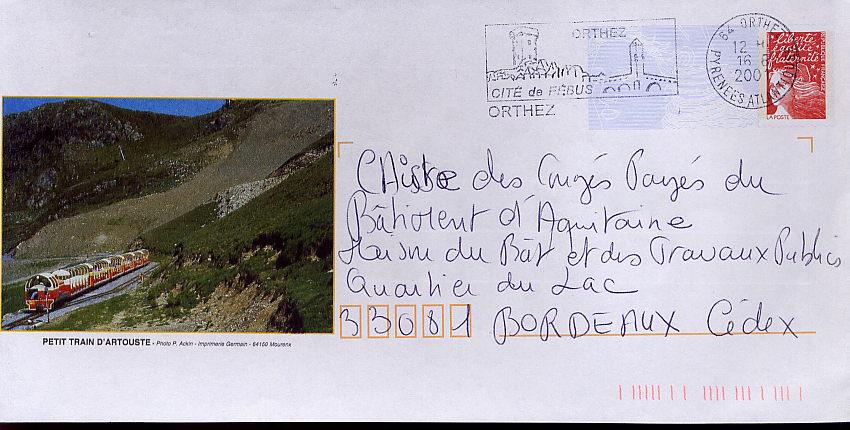 ORTHEZ
CITÉ de FÉBUS
ORTHEZ
64 ORTHEZ
12 H
16 8
2001
PYRENEES ATLANTIQUES
liberté
égalité
fraternité
REPUBLIQUE FRANÇAISE
LA POSTE
Caisse des Congés Payés du
Bâtiment d'Aquitaine
Maison du Bât et des Travaux Publics
Quartier du Lac
33081 BORDEAUX Cédex
PETIT TRAIN D'ARTOUSTE - Photo P. Ackin - Imprimerie Germain - 64150 Mourenx